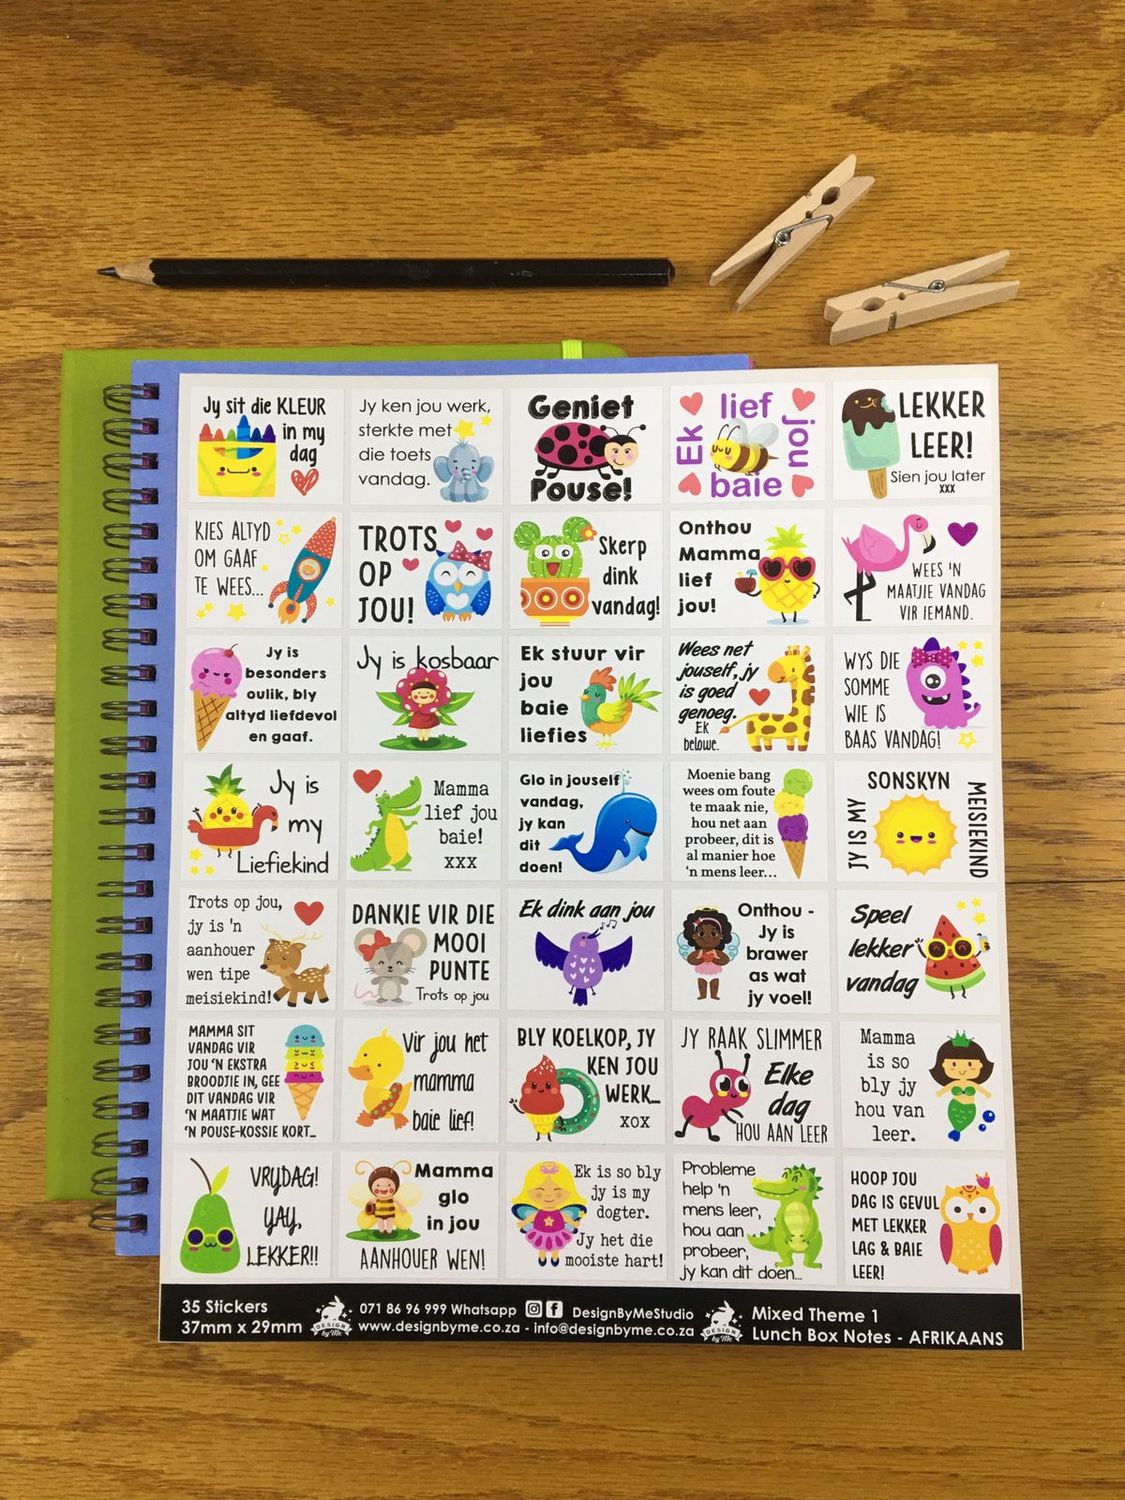 Jy sit die KLEUR
in my
dag
Jy ken jou werk,
sterkte met
die toets
vandag.
Geniet
Pouse!
Ek
lief
jou
baie
LEKKER
LEER!
Sien jou later
xxx
KIES ALTYD
OM GAAF
TE WEES...
TROTS
OP
JOU!
Skerp
dink
vandag!
Onthou
Mamma
lief
jou!
WEES 'N
MAATJIE VANDAG
VIR IEMAND.
Jy is
besonders
oulik, bly
altyd liefdevol
en gaaf.
Jy is kosbaar
Ek stuur vir
jou
baie
liefies
Wees net
jouself, jy
is goed
genoeg.
Ek
belowe.
WYS DIE
SOMME
WIE IS
BAAS VANDAG!
Jy is
my
Liefiekind
Mamma
lief jou
baie!
xxx
Glo in jouself
vandag,
jy kan
dit
doen!
Moenie bang
wees om foute
te maak nie,
hou net aan
probeer, dit is
al manier hoe
'n mens leer...
JY IS MY
SONSKYN
MEISIEKIND
Trots op jou,
jy is 'n
aanhouer
wen tipe
meisiekind!
DANKIE VIR DIE
MOOI
PUNTE
Trots op jou
Ek dink aan jou
Onthou -
Jy is
brawer
as wat
jy voel!
Speel
lekker
vandag
MAMMA SIT
VANDAG VIR
JOU 'N EKSTRA
BROODJIE IN, GEE
DIT VANDAG VIR
'N MAATJIE WAT
'N POUSE-KOSSIE KORT...
Vir jou het
mamma
baie lief!
BLY KOELKOP, JY
KEN JOU
WERK...
xox
JY RAAK SLIMMER
Elke
dag
HOU AAN LEER
Mamma
is so
bly jy
hou van
leer.
VRYDAG!
YAY,
LEKKER!!
Mamma
glo
in jou
AANHOUER WEN!
Ek is so bly
jy is my
dogter.
Jy het die
mooiste hart!
Probleme
help 'n
mens leer,
hou aan
probeer,
jy kan dit doen...
HOOP JOU
DAG IS GEVUL
MET LEKKER
LAG & BAIE
LEER!
35 Stickers
37mm x 29mm
DESIGN
by Me
071 86 96 999 Whatsapp
DesignByMeStudio
www.designbyme.co.za - info@designbyme.co.za
DESIGN
by Me
Mixed Theme 1
Lunch Box Notes - AFRIKAANS